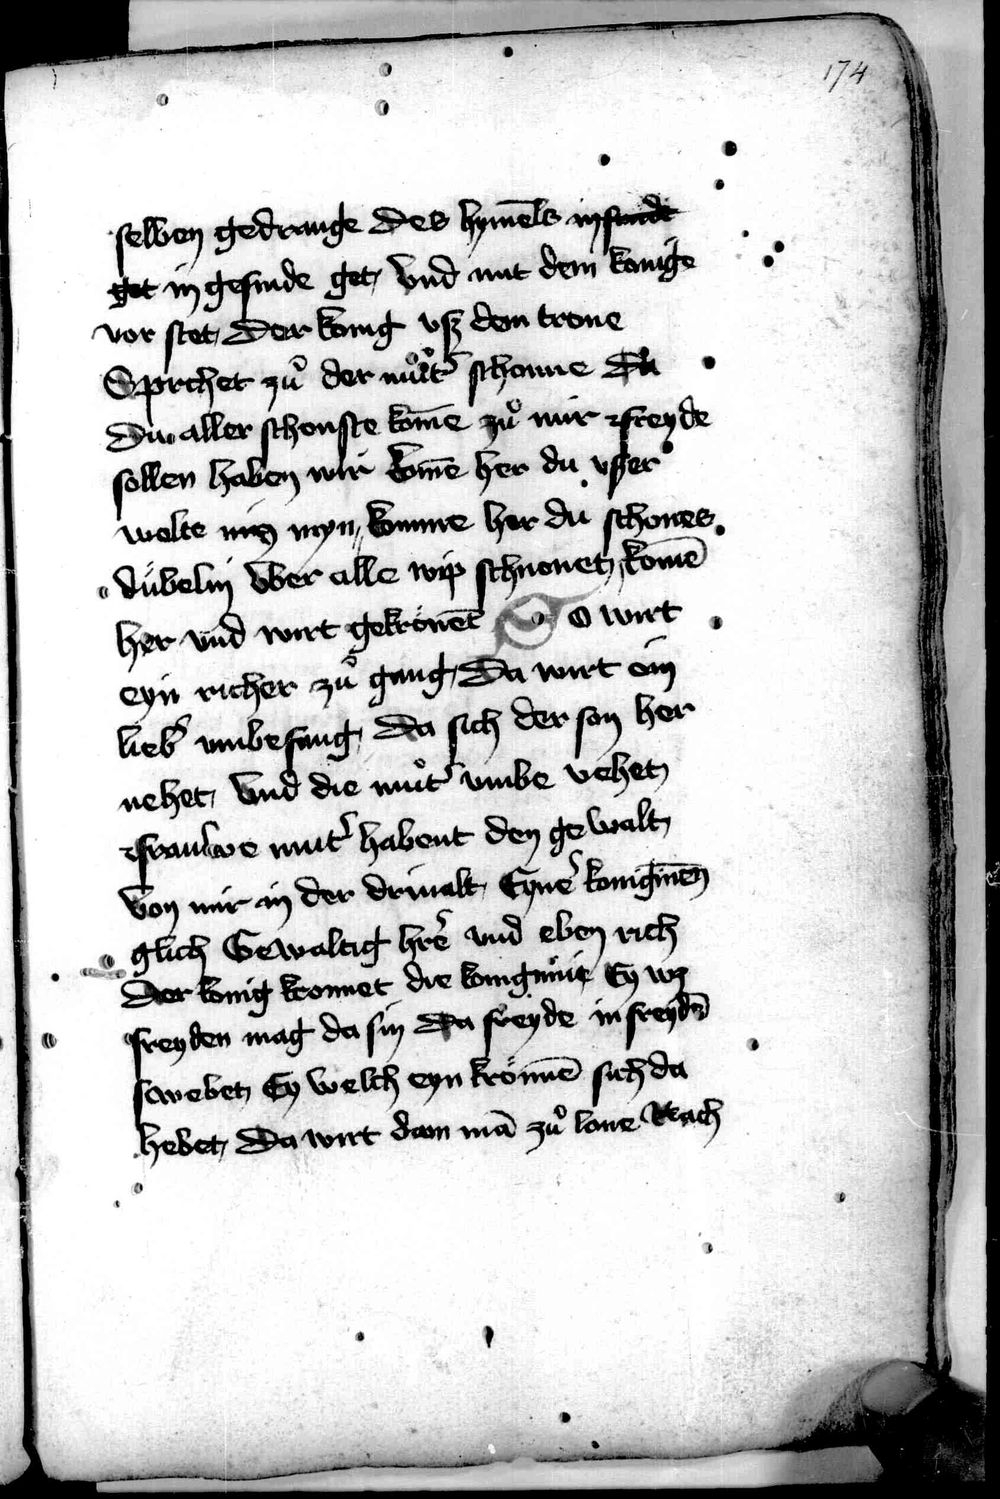 174
selben gedrange des hymēls
get in gesinde get, Und mit dem konige
vor stet, Der konig vß dem trone
Sprchet zů der můtˀ schonne Da
Du aller schonste kōme zů mir freyde
sollen haben wir kōme her du vßer
welte myn, komme her du schones
dúbelin Uber alle wip schnonet, komē
her und wirt gekrönēt So wirt
eyn richer zů gang, Da wirt ein
liebˀ umbefang, Da sich der son her
nehet, Und die můtˀ umbe vehet,
frauwe mutˀ habent den gewalt,
Von mir in der drivalt, Eynēˀ koniginēn
glich Gewaltig hrē und eben rich
Der konig kronnet die konginne Ey wz
freyden mag da sin Da freyde in freydē
swebet, Ey welch eyn krönnē sich da
hebet, Da wirt dann mā zů lone Nach